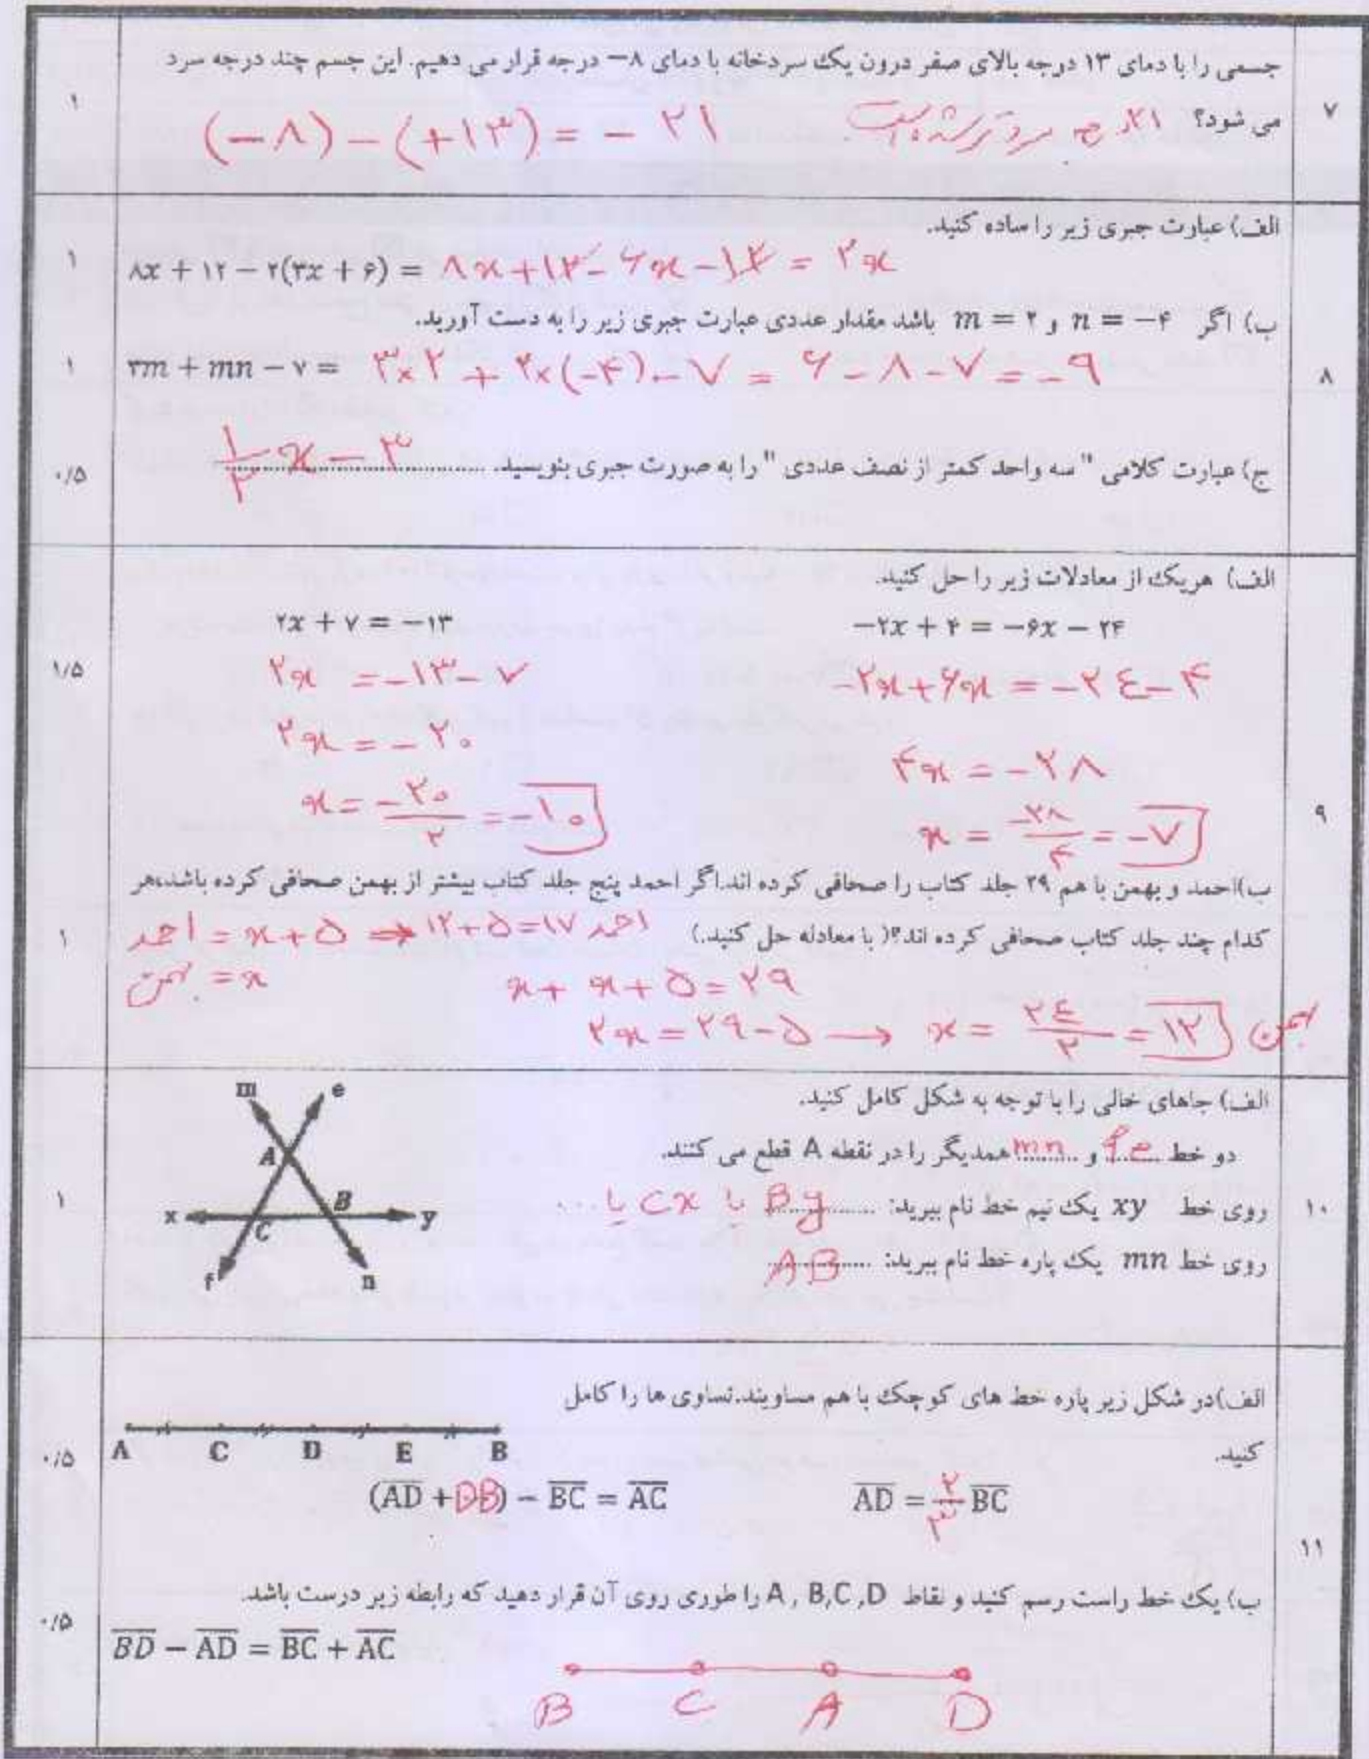 ۷
جسمی را با دمای ۱۳ درجه بالای صفر درون یک سردخانه با دمای ۸− درجه قرار می دهیم. این جسم چند درجه سرد
می شود؟ ۲۱ درجه سردتر شده است (−۸) − (+۱۳) = − ۲۱
۱
الف) عبارت جبری زیر را ساده کنید.
۸x + ۱۲ − ۲(۳x + ۶) = ۸x + ۱۲ − ۶x − ۱۲ = ۲x
۱
ب) اگر n = −۴ و m = ۲ باشد مقدار عددی عبارت جبری زیر را به دست آورید.
۳m + mn − ۷ = ۳×۲ + ۲×(−۴) − ۷ = ۶ − ۸ − ۷ = −۹
۱
۸
ج) عبارت کلامی " سه واحد کمتر از نصف عددی " را به صورت جبری بنویسید. ۱/۲ x − ۳
۰/۵
الف) هریک از معادلات زیر را حل کنید.
۲x + ۷ = −۱۳
−۲x + ۴ = −۶x − ۲۴
۱/۵
۲x = −۱۳ − ۷
−۲x + ۶x = −۲۴ − ۴
۲x = − ۲۰
۴x = −۲۸
x = −۲۰/۲ = −۱۰
x = −۲۸/۴ = −۷
۹
ب)احمد و بهمن با هم ۲۹ جلد کتاب را صحافی کرده اند.اگر احمد پنج جلد کتاب بیشتر از بهمن صحافی کرده باشد،هر
کدام چند جلد کتاب صحافی کرده اند؟( با معادله حل کنید.) احمد ۱۲+۵=۱۷ ⇐ احمد = x + ۵
۱
بهمن = x
x + x + ۵ = ۲۹
۲x = ۲۹ − ۵ → x = ۲۴/۲ = ۱۲ بهمن
الف) جاهای خالی را با توجه به شکل کامل کنید.
دو خط fe و mn همدیگر را در نقطه A قطع می کنند.
روی خط xy یک نیم خط نام ببرید: By یا Cx یا ...
روی خط mn یک پاره خط نام ببرید: AB
۱۰
۱
m e
A
x C B y
f n
الف)در شکل زیر پاره خط های کوچک با هم مساویند.تساوی ها را کامل
کنید.
A C D E B
۰/۵
(AD + DB) − BC = AC
AD = ۲/۳ BC
۱۱
ب) یک خط راست رسم کنید و نقاط A , B,C ,D را طوری روی آن قرار دهید که رابطه زیر درست باشد.
۰/۵
BD − AD = BC + AC
B C A D